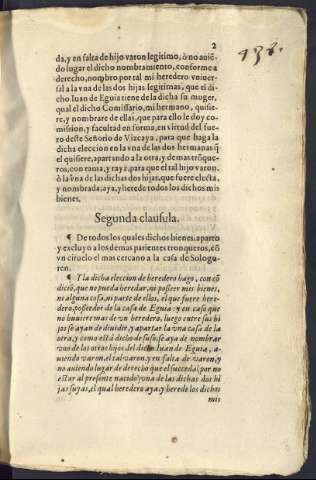 2
138.
da, y en falta de hijo varon legitimo, ò no auiẽ-
do lugar el dicho nombramiento, conforme a
derecho, nombro por tal mi heredero vniuer-
sal a la vna de las dos hijas legitimas, que el di-
cho Iuan de Eguia tiene de la dicha su muger,
qual el dicho Comissario, mi hermano, quisie-
re, y nombrare de ellas, que para ello le doy co-
mission, y facultad en forma, en virtud del fue-
ro deste Señorio de Vizcaya, para que haga la
dicha eleccion en la vna de las dos hermanas q̃
el quisiere, apartando a la otra, y demas trõque-
ros, con rama, y rayz, para que el tal hijo varon,
ò la vna de las dichas dos hijas, que fuere electa,
y nombrada, aya, y herede todos los dichos mis
bienes.
Segunda clausula.
¶ De todos los quales dichos bienes, aparto
y excluyo a los demas parientes tronqueros, cõ
vn ciruelo el mas cercano a la casa de Sologu-
ren.
¶ Y la dicha eleccion de heredero hago, con cõ
diciõ, que no pueda heredar, ni posseer mis bienes,
ni alguna cosa, ni parte de ellos, el que fuere here-
dero, posseedor de la casa de Eguia: y en caso que
no huuiere mas de vn heredero, luego entre sus hi-
jos se ayan de diuidir, y apartar la vna casa de la
otra, y como està dicho de suso, se aya de nombrar
vno de los otros hijos del dicho Iuan de Eguia, a-
uiendo varon, el tal varon, y en falta de varon, y
no auiendo lugar de derecho que el succeda (por no
estar al presente nacido) vna de las dichas dos hi
jas suyas, el qual heredero aya, y herede los dichos
mis